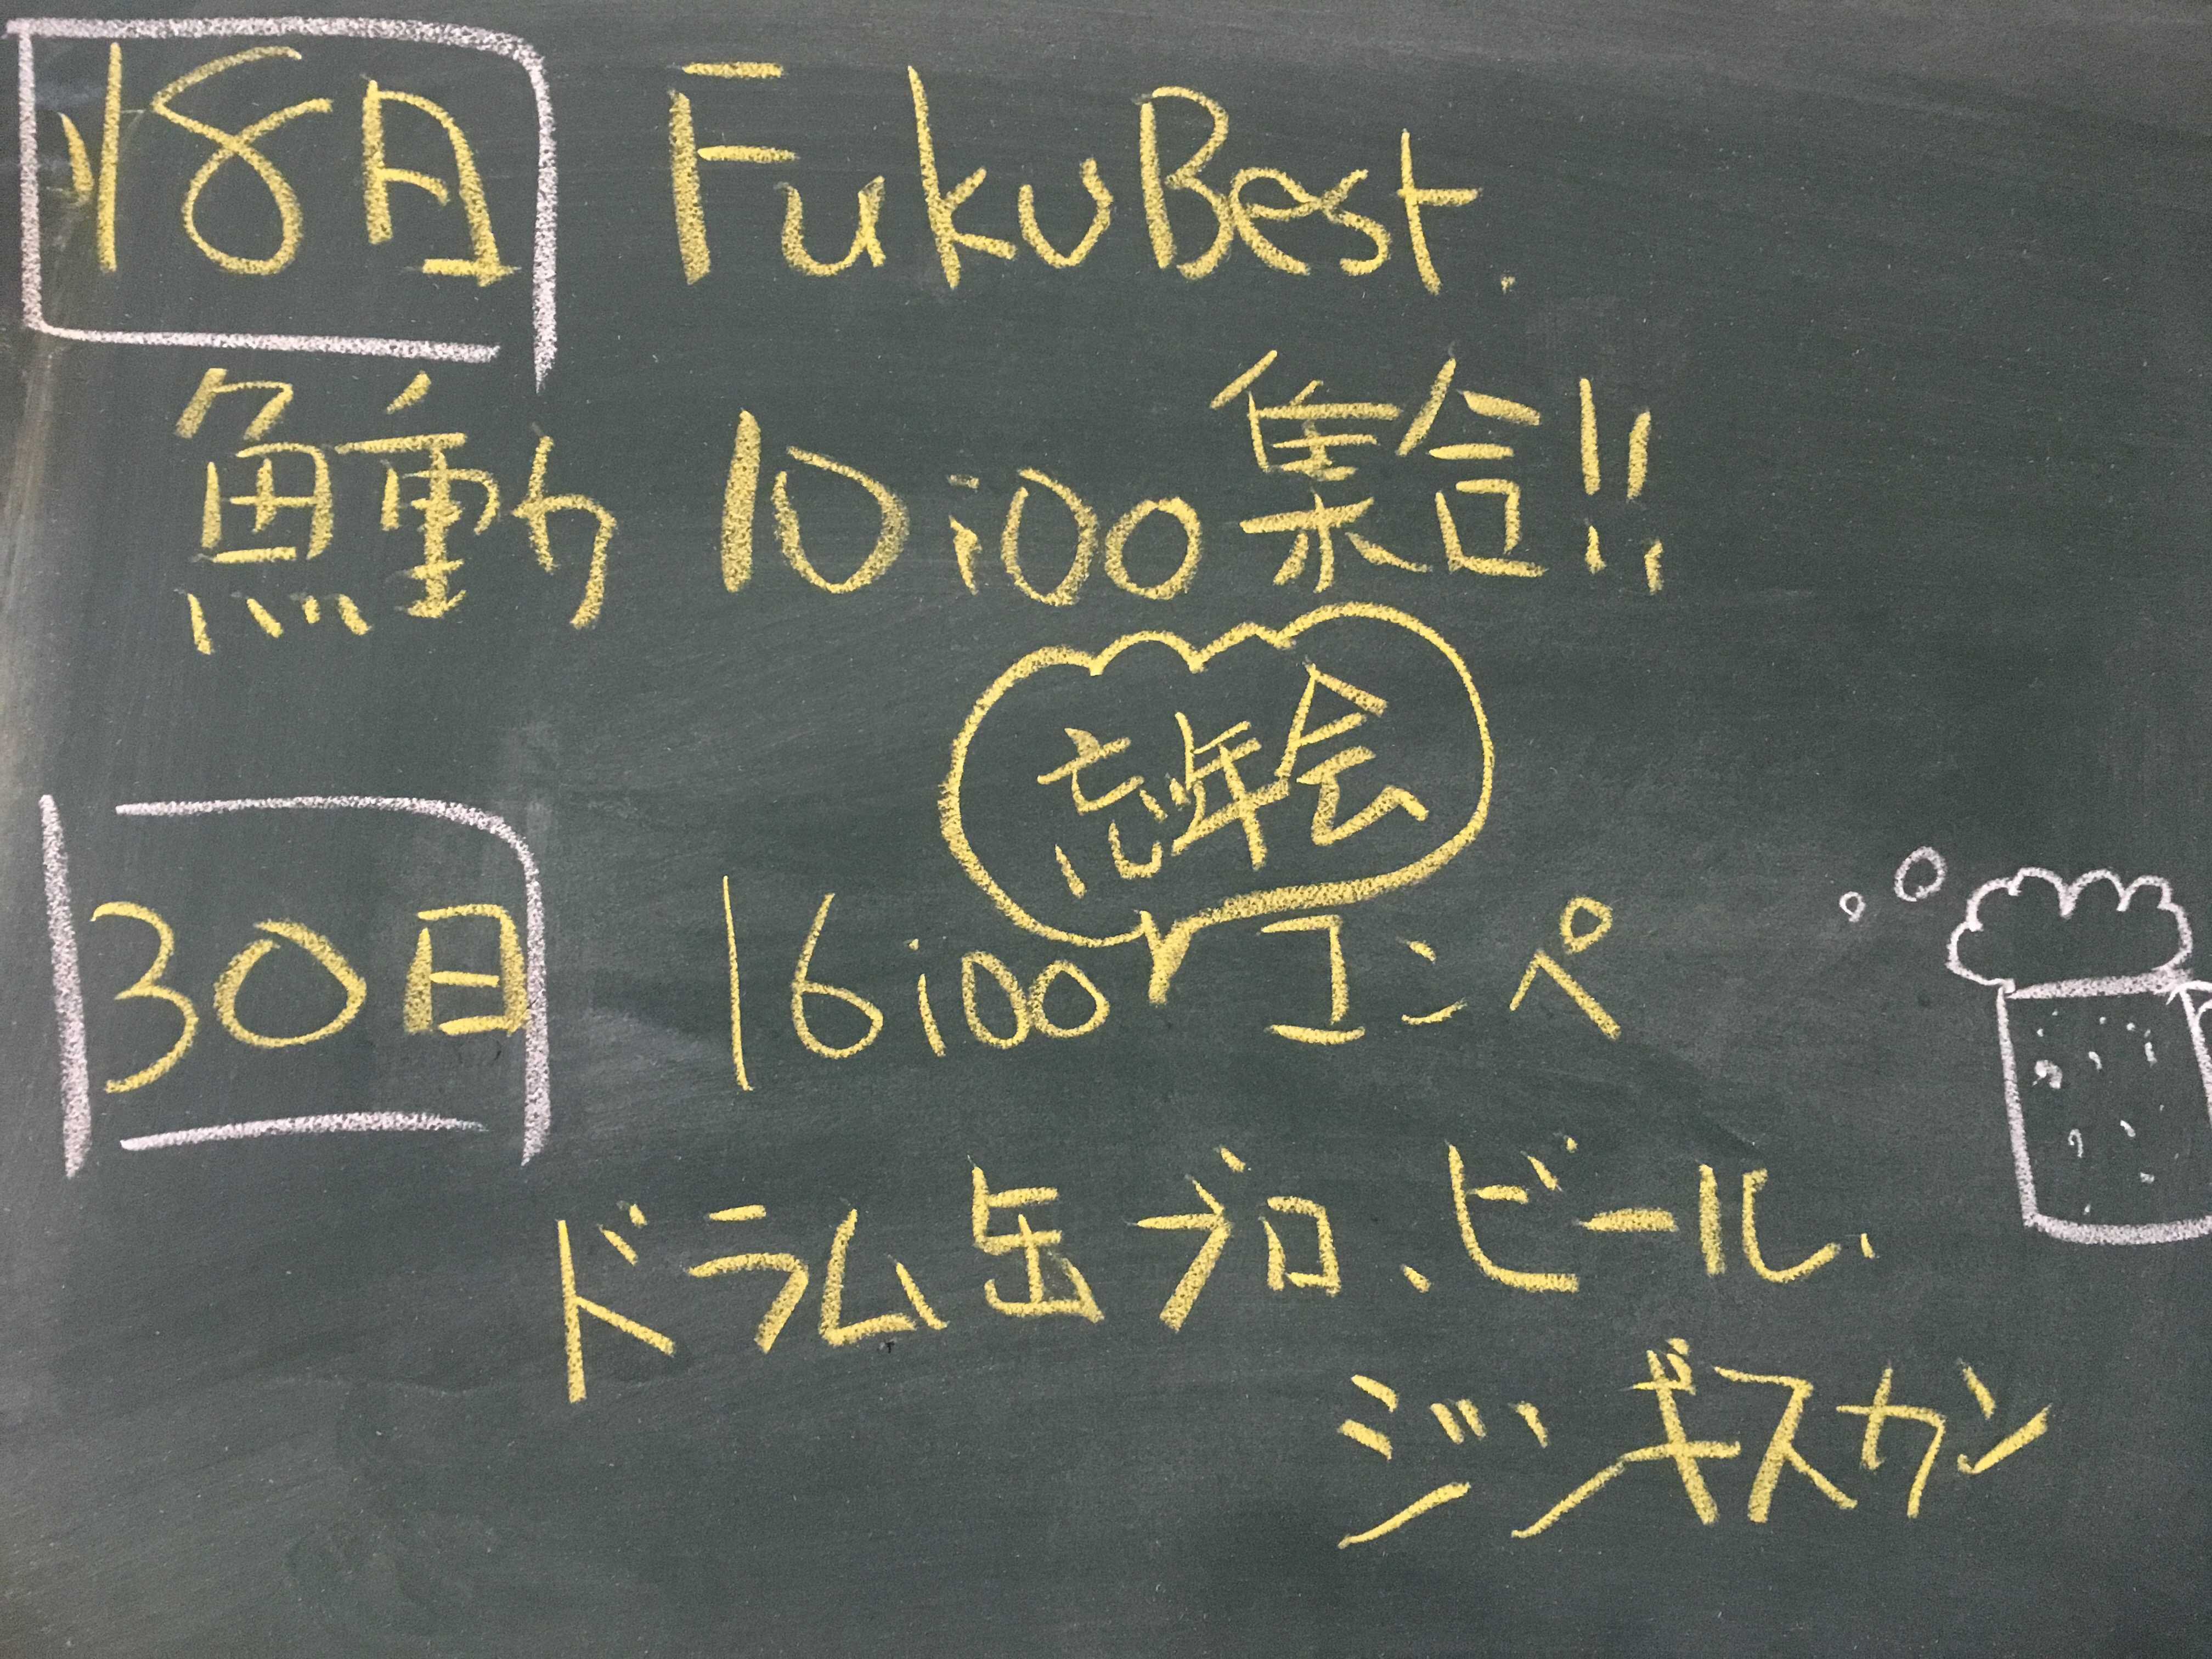 18日 FukuBest.
魚重力 10:00集合!!
忘年会
30日 16:00 コンペ
ドラム缶ブロ、ビール、
ジンギスカン